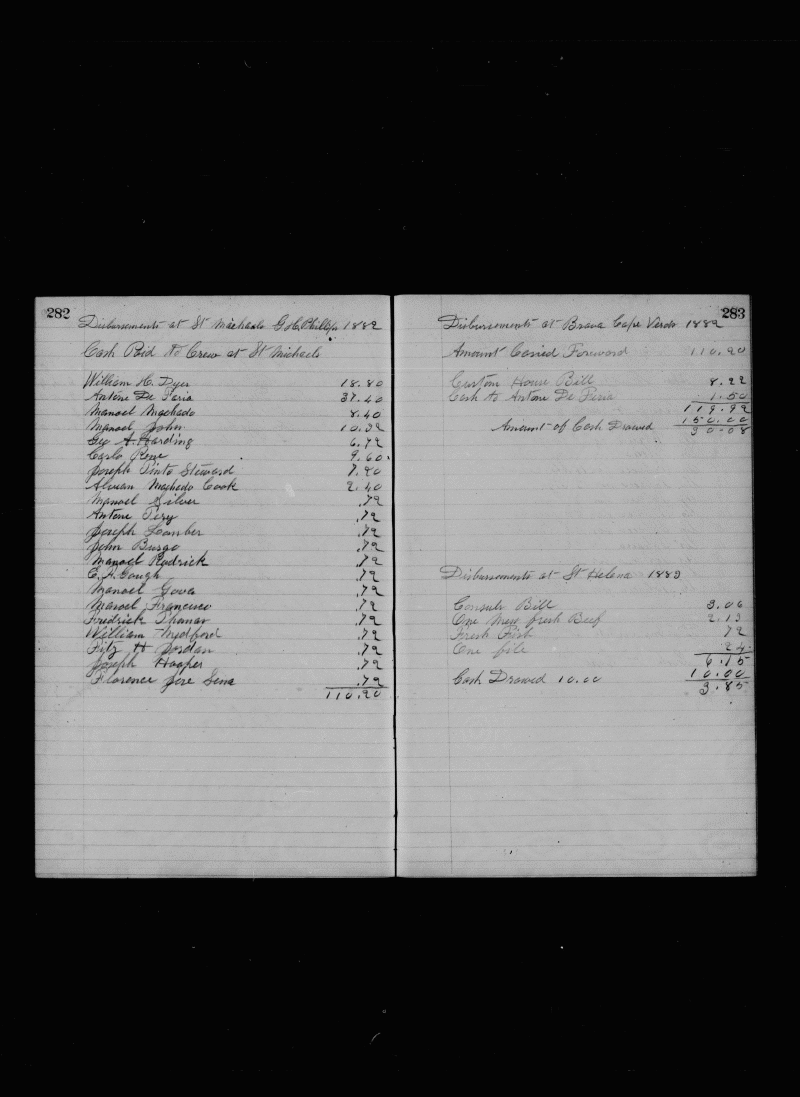 282
Disbursements at St Michaels G. H. Phillips 1882
Cash Paid to Crew at St Michaels
William H. Dyer 18.80
Antone De Faria 37.40
Manoel Machado 8.40
Manoel John 10.32
Geo A. Harding 6.72
Carlo Rene 9.60
Joseph Pinto Steward 7.20
Machado Cook 2.40
Manoel Silver .72
Antone .72
Joseph .72
John Burgo .72
Manoel Rodrick .72
E. A. Gough .72
Manoel Gova .72
Manoel Francisco .72
Fredrick .72
William Medford .72
Fitz H Jordan .72
Joseph Hooper .72
Florence Jose Sena .72
110.20
283
Disbursements at Brava Cape Verds 1882
Amount Carried Forward 110.20
Custom House Bill 8.22
Cash to Antone De Faria 1.50
119.92
Amount of Cash Drawed 150.00
30.08
Disbursements at St Helena 1883
Consuls Bill 3.06
One fresh Beef 2.13
Fresh Fish 72
One file 24
6.15
Cash Drawed 10.00 10.00
3.85